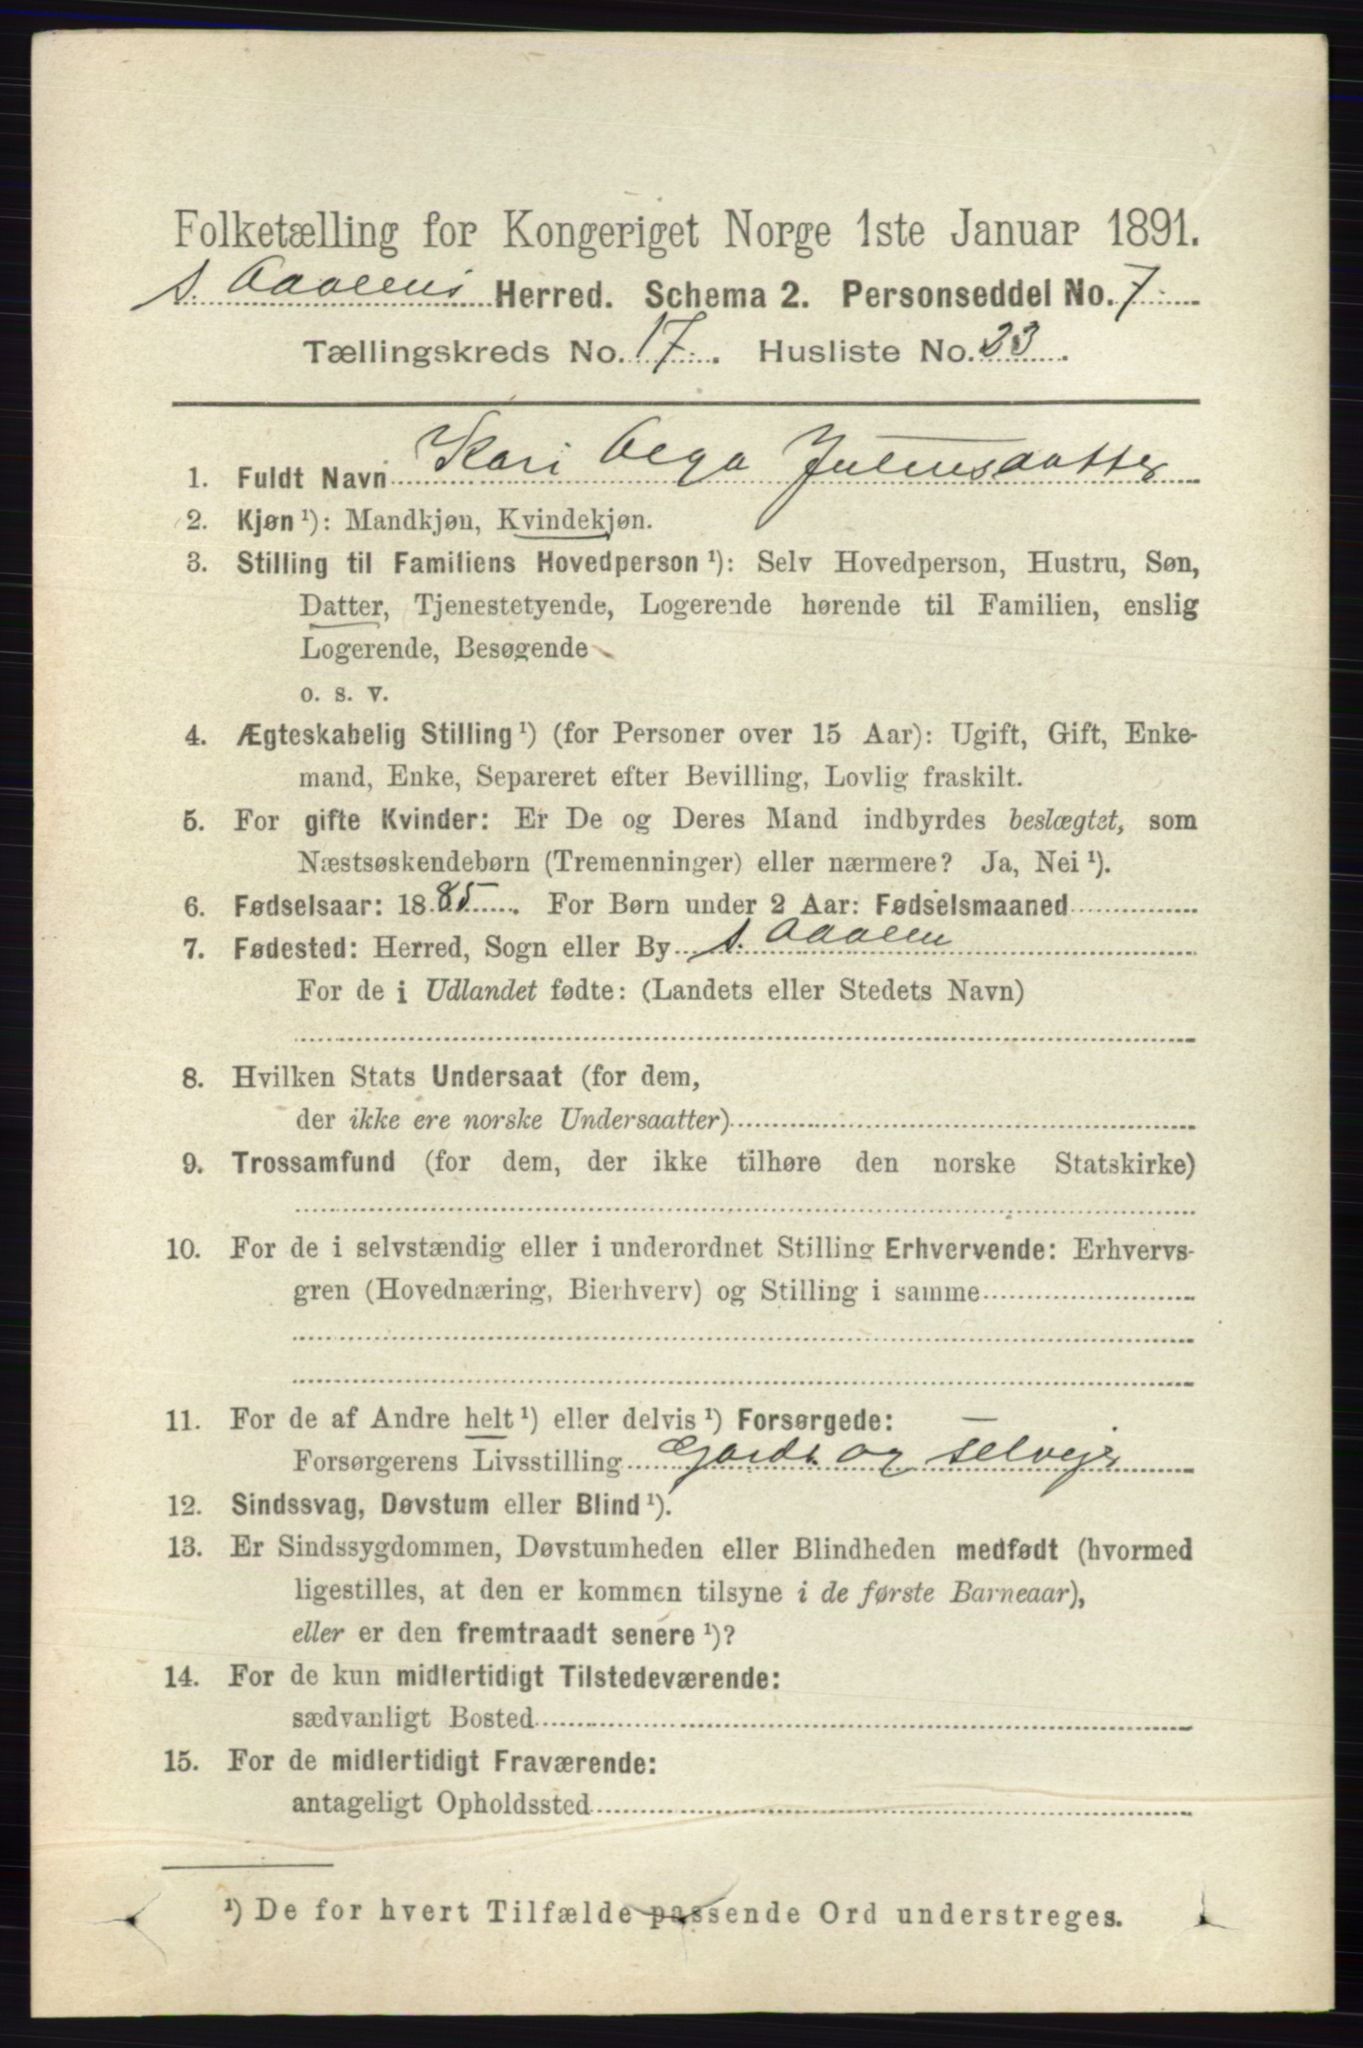 Folketælling for Kongeriget Norge 1ste Januar 1891.
S. Aadlens Herred. Schema 2. Personseddel No. 7
Tællingskreds No. 17. Husliste No. 23.
1. Fuldt Navn Kari Olga Juliusdatter
2. Kjøn ¹): Mandkjøn, Kvindekjøn.
3. Stilling til Familiens Hovedperson ¹): Selv Hovedperson, Hustru, Søn,
Datter, Tjenestetyende, Logerende hørende til Familien, enslig
Logerende, Besøgende
o. s. v.
4. Ægteskabelig Stilling ¹) (for Personer over 15 Aar): Ugift, Gift, Enke-
mand, Enke, Separeret efter Bevilling, Lovlig fraskilt.
5. For gifte Kvinder: Er De og Deres Mand indbyrdes beslægtet, som
Næstsøskendebørn (Tremenninger) eller nærmere? Ja, Nei ¹).
6. Fødselsaar: 1885. For Børn under 2 Aar: Fødselsmaaned
7. Fødested: Herred, Sogn eller By S. Aadlen
For de i Udlandet fødte: (Landets eller Stedets Navn)
8. Hvilken Stats Undersaat (for dem,
der ikke ere norske Undersaatter)
9. Trossamfund (for dem, der ikke tilhøre den norske Statskirke)
10. For de i selvstændig eller i underordnet Stilling Erhvervende: Erhvervs-
gren (Hovednæring, Bierhverv) og Stilling i samme
11. For de af Andre helt ¹) eller delvis ¹) Forsørgede:
Forsørgerens Livsstilling Gardb. og selvejr
12. Sindssvag, Døvstum eller Blind ¹).
13. Er Sindssygdommen, Døvstumheden eller Blindheden medfødt (hvormed
ligestilles, at den er kommen tilsyne i de første Barneaar),
eller er den fremtraadt senere ¹)?
14. For de kun midlertidigt Tilstedeværende:
sædvanligt Bosted
15. For de midlertidigt Fraværende:
antageligt Opholdssted
¹) De for hvert Tilfælde passende Ord understreges.